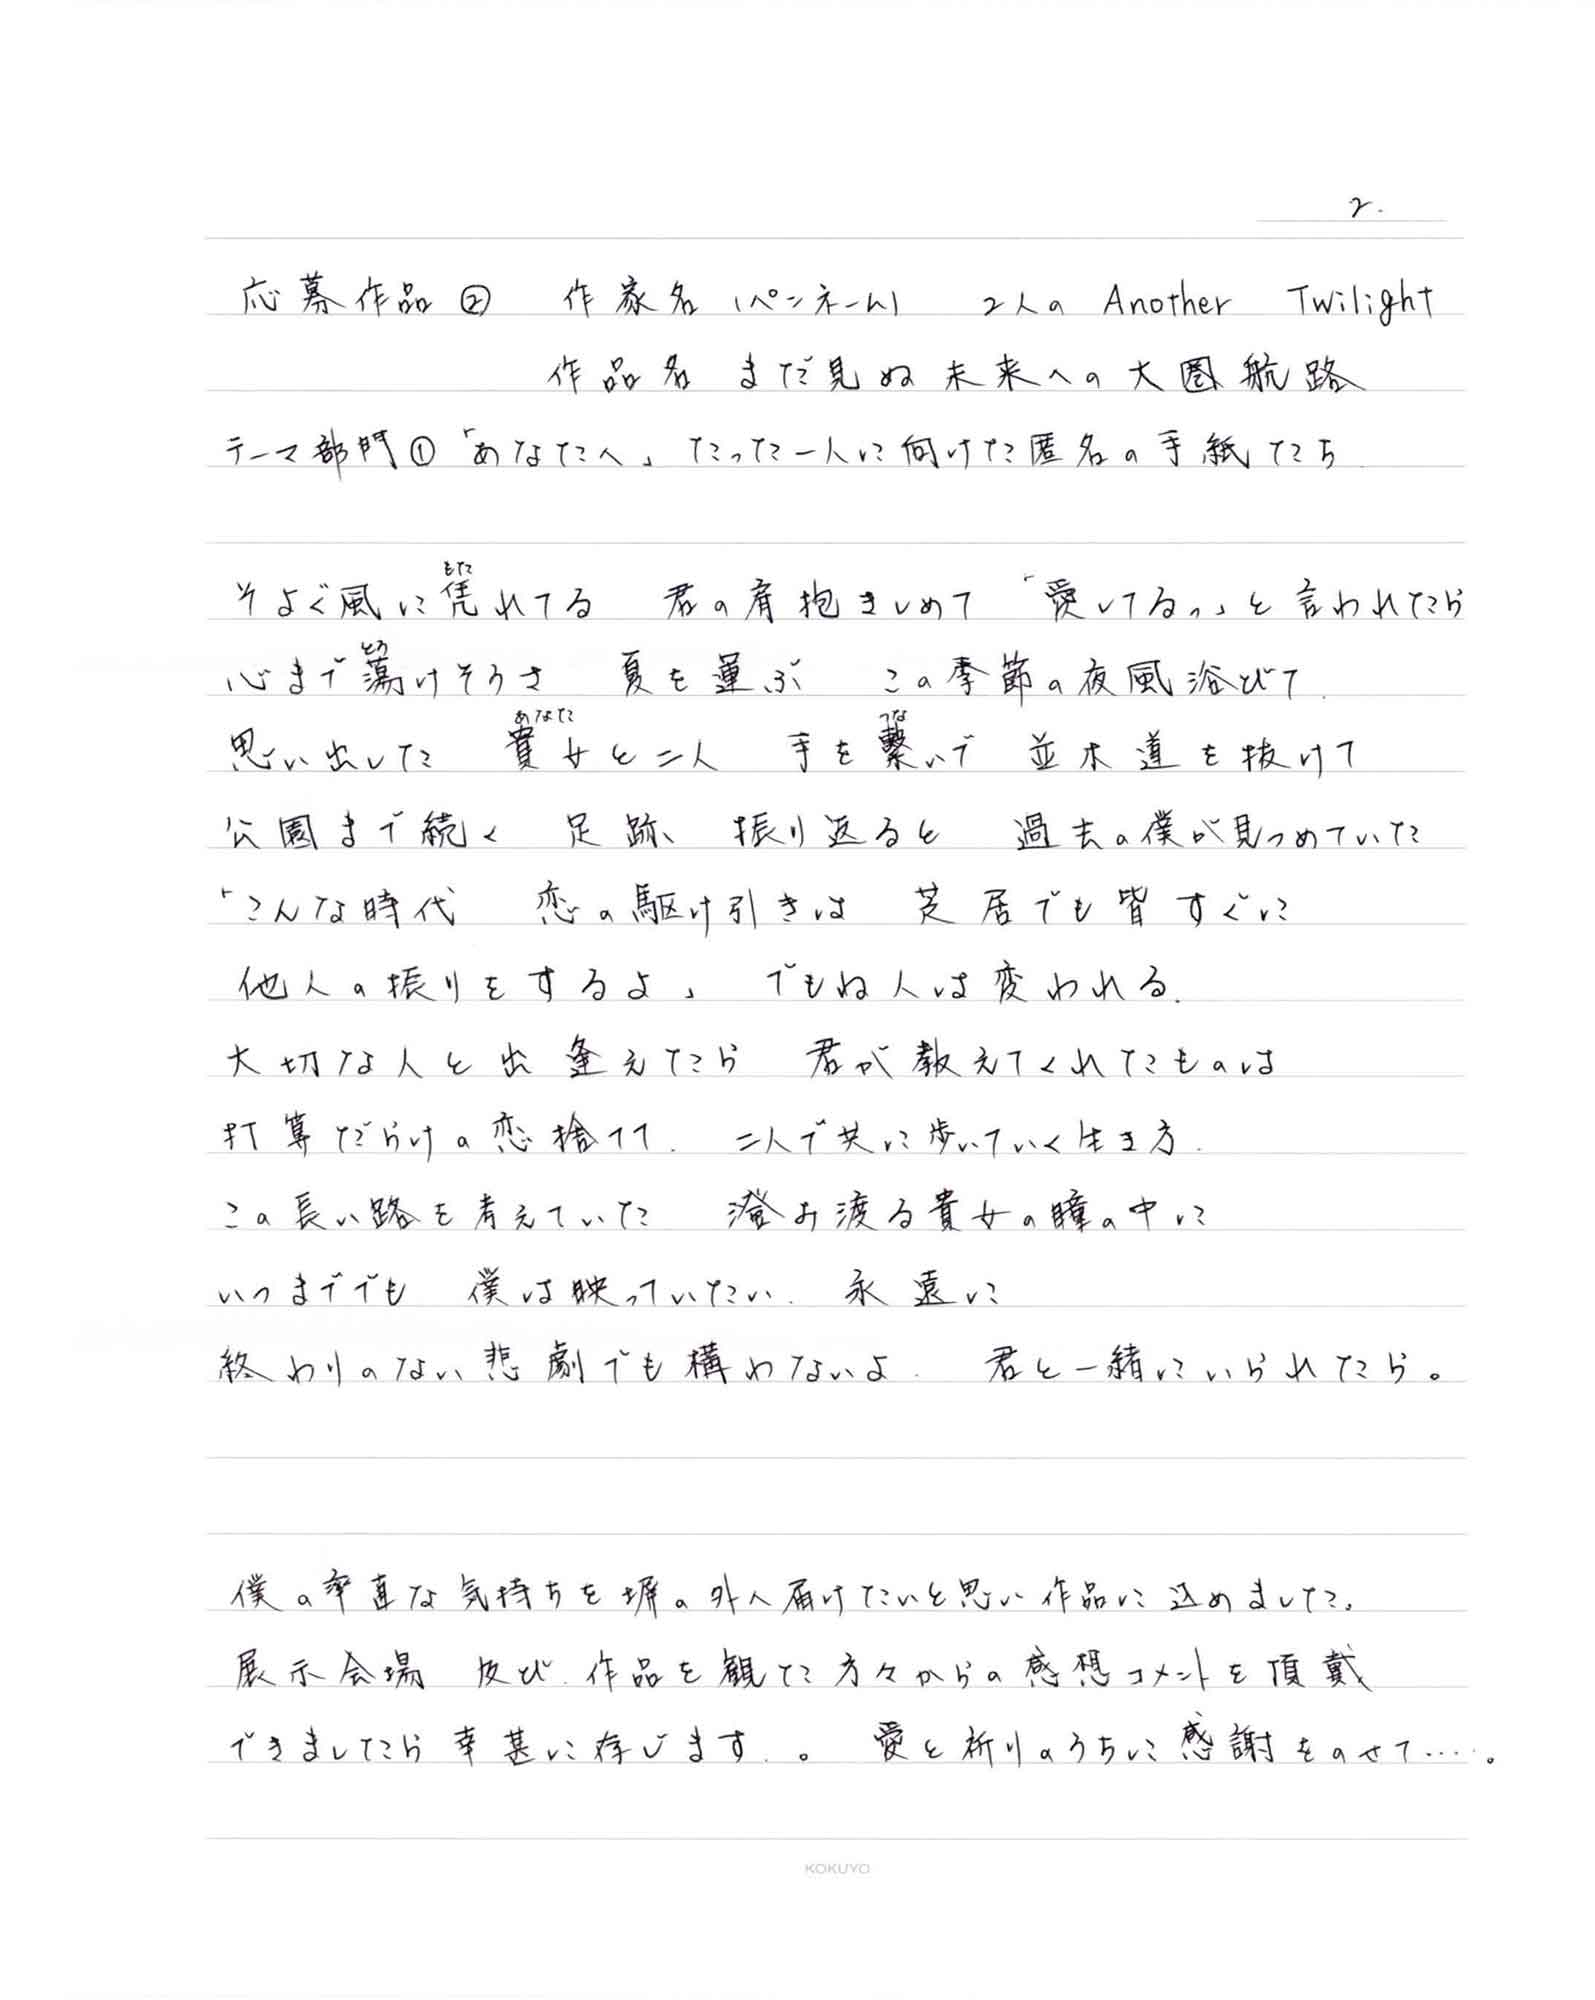 2.
応募作品② 作家名(ペンネーム) 2人の Another Twilight
作品名 まだ見ぬ未来への大圏航路
テーマ部門①「あなたへ」たった一人に向けた匿名の手紙たち
そよぐ風に凭れてる 君の肩抱きしめて 「愛してるっ」と言われたら
もた
心まで蕩けそうさ 夏を運ぶ この季節の夜風浴びて.
とろ
思い出した 貴女と二人 手を繋いで 並木道を抜けて
あなた つな
公園まで続く 足跡、 振り返ると 過去の僕が見つめていた
「こんな時代 恋の駆け引きは 芝居でも皆すぐに
他人の振りをするよ」 でもね人は変われる.
大切な人と出逢えたら 君が教えてくれたものは
打算だらけの恋捨てて. 二人で共に歩いていく生き方.
この長い路を考えていた 澄み渡る貴女の瞳の中に
いつまででも 僕は映っていたい. 永遠に
終わりのない悲劇でも構わないよ. 君と一緒にいられたら。
僕の率直な気持ちを塀の外へ届けたいと思い作品に込めました。
展示会場 及び.作品を観た方々からの感想コメントを頂戴
できましたら幸甚に存じます.。 愛と祈りのうちに感謝をのせて‥‥。
KOKUYO